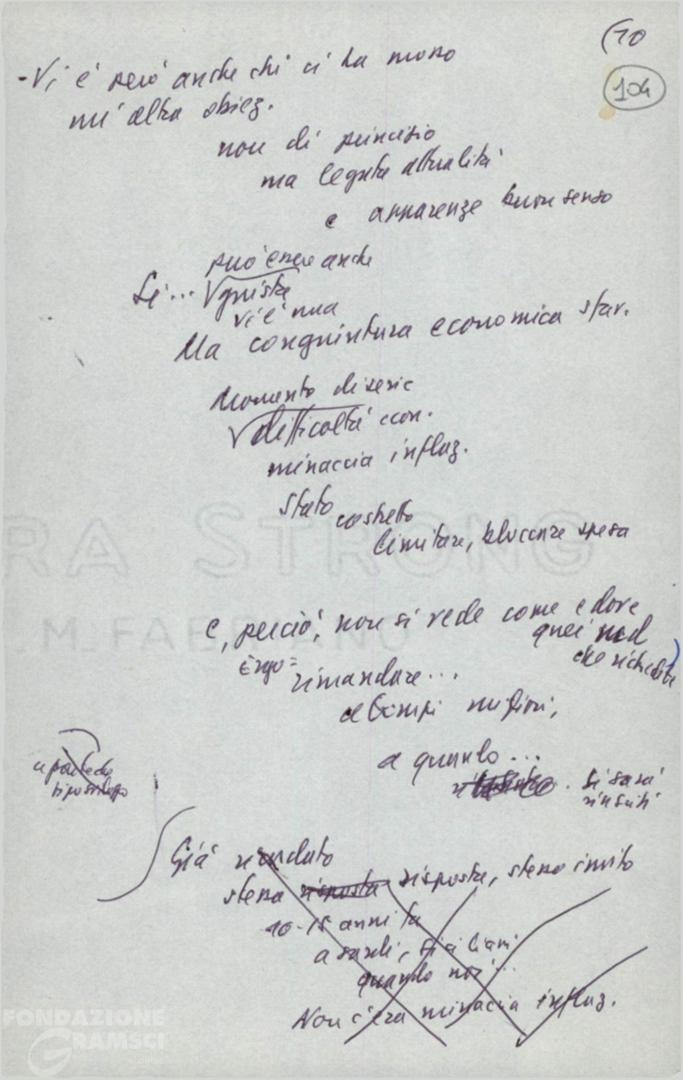 (10
104
- Vi è però anche chi ci ha mosso
un'altra obiez.
non di principio
ma legata attualità
e apparenze buon senso
può essere anche
Sì... giusta
vi è una
Ma congiuntura economica sfav.
Momento di serie
difficoltà econ.
minaccia inflaz.
Stato costretto
limitare, bloccare spesa
e, perciò, non si vede come e dove
quei
che richiedete
Ergo =
rimandare...
a tempi migliori,
a quando...
si sarà
riusciti
Già
stessa risposta risposta, stesso invito
10-15 anni fa
a sardi, siciliani
quando noi...
Non c'era minaccia inflaz.
RA STRONG
.M. FABRIANO
FONDAZIONE
GRAMSCI